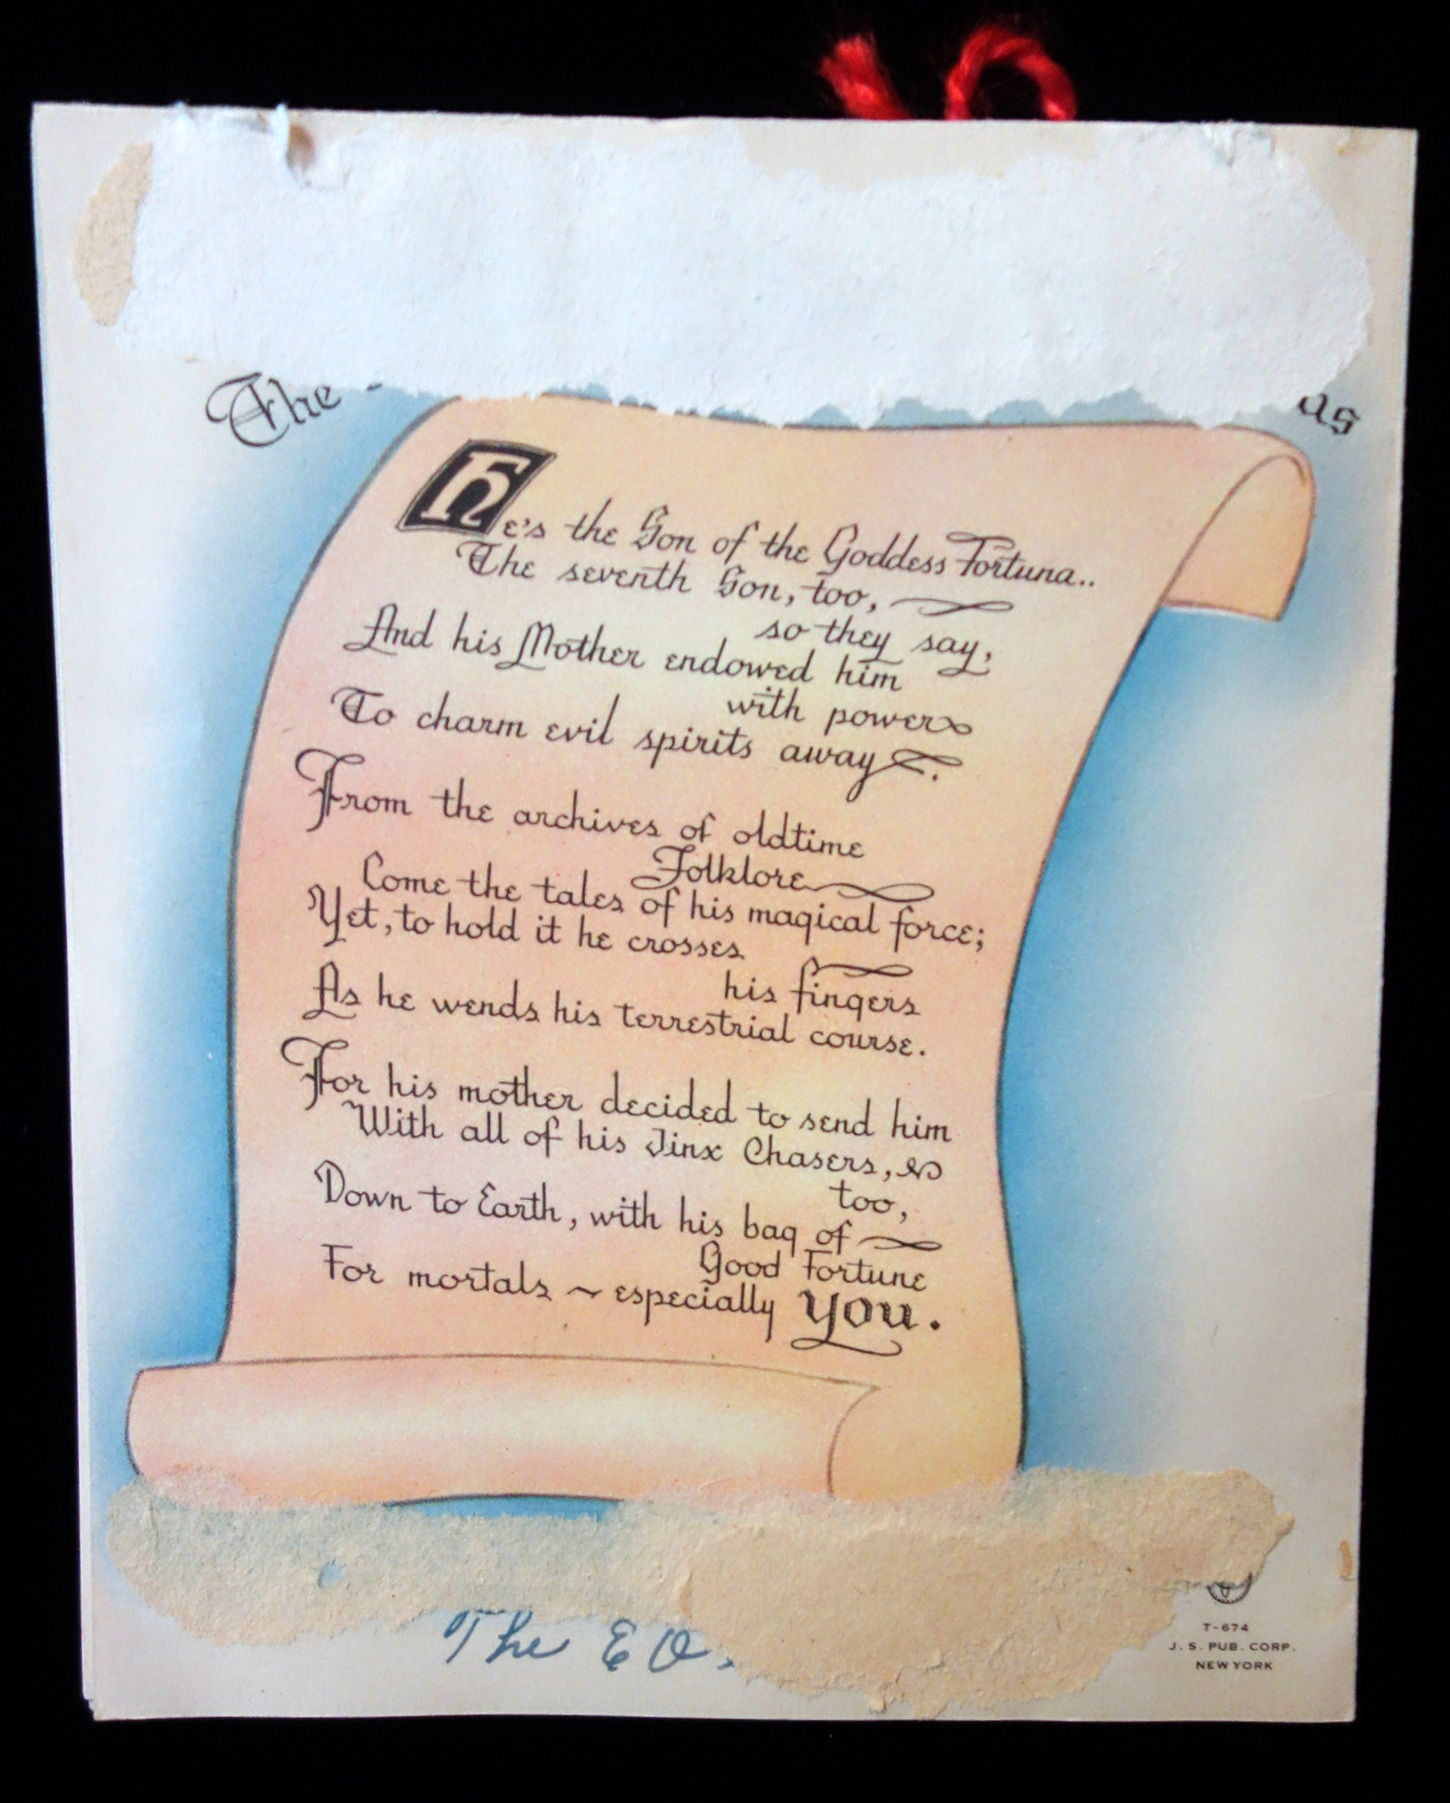 The
as
He's the Son of the Goddess Fortuna..
The seventh Son, too,
so they say,
And his Mother endowed him
with power
To charm evil spirits away.
From the archives of oldtime
Folklore
Come the tales of his magical force;
Yet, to hold it he crosses
his fingers
As he wends his terrestrial course.
For his mother decided to send him
With all of his Jinx Chasers,
too,
Down to Earth, with his bag of
Good Fortune
For mortals ~ especially you.
The
T-674
J. S. PUB. CORP.
NEW YORK